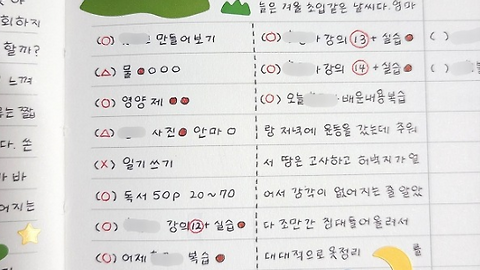 회하지
할까?
느껴
다. 쓴
바 바
어지는
(O) 만들어보기
(△) 물 ● O O O
(O) 영양제 ●●
(△) 사진 ● 안마 ㅁ
(X) 일기쓰기
(O) 독서 50p 20~70
(O) 강의 ⑫ + 실습 ●
(O) 어제 복습 ●
늘은 겨울 초입같은 날씨다. 엄마
(O) 강의 ⑬ + 실습 ●
(O) 강의 ⑭ + 실습 ●
(O) 오늘 배운내용복습
랑 저녁에 운동을 갔는데 추워
서 땀은 고사하고 허벅지가 얼
어서 감각이 없어지는 줄 알았
다 조만간 침대들어올려서
대대적으로 옷정리 를
( )
( )